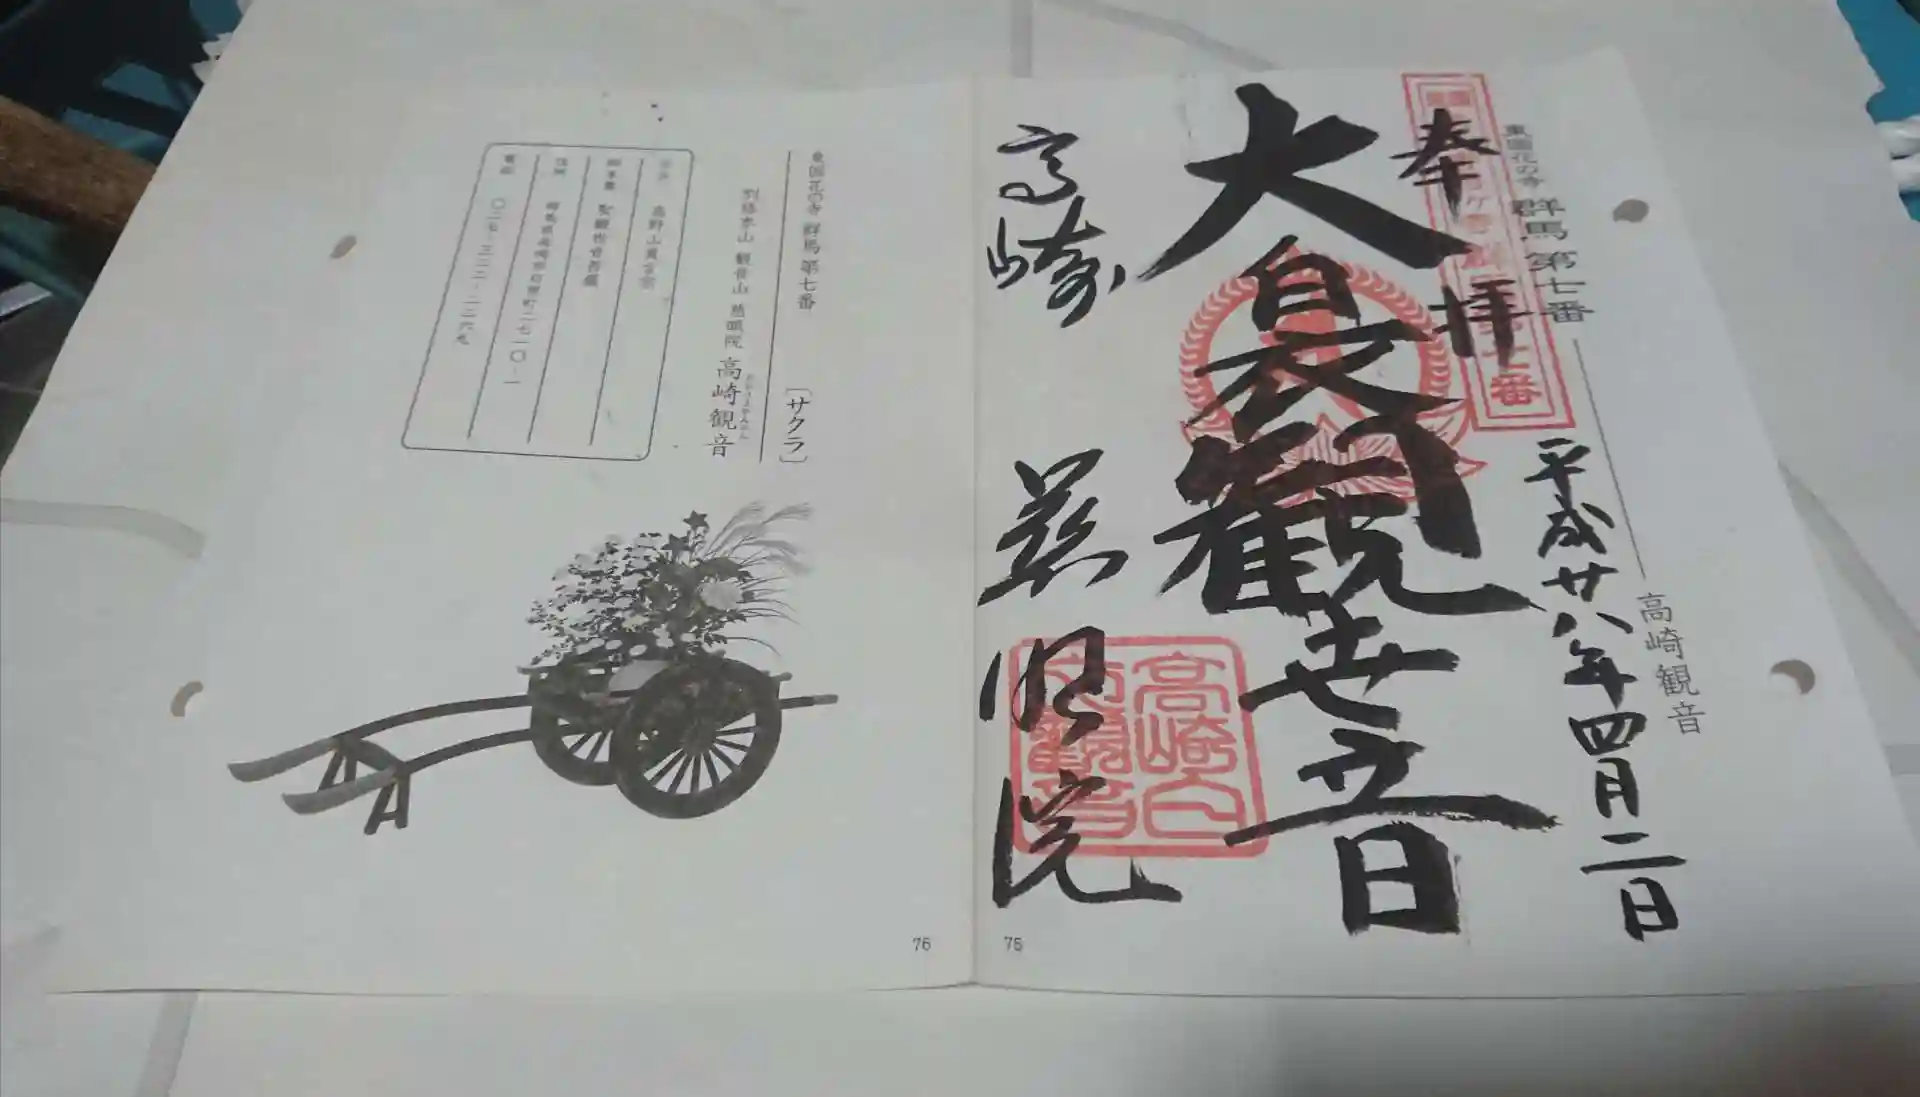 東国花の寺 群馬第七番
高崎観音
奉拝
平成廿八年四月二日
大白衣観世音
高崎 慈眼院
高崎白衣観音
75
東国花の寺 群馬第七番
〔サクラ〕
別格本山 観音山 慈眼院 高崎観音
高野山真言宗
御本尊 聖観世音菩薩
住所 群馬県高崎市石原町二七一〇-一
電話 〇二七-三二二-二二六九
76